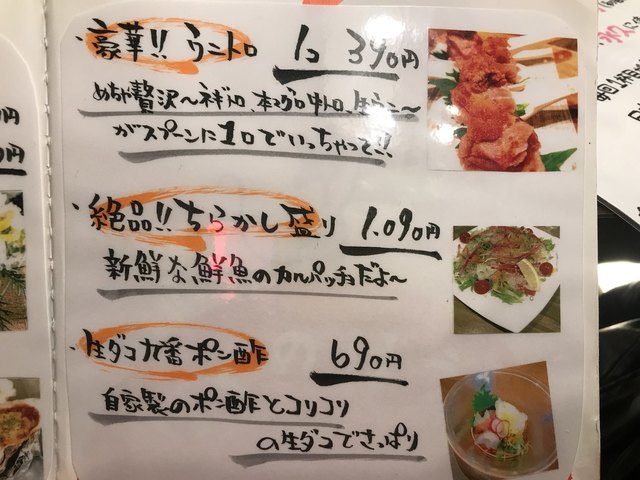 ・豪華!! ウニトロ 1コ 390円
めちゃ贅沢〜ネギトロ、本マグロ中トロ、生ウニ〜
がスプーンに1口でいっちゃって!!
・絶品!! ちらかし盛り 1,090円
新鮮な鮮魚のカルパッチョだよ〜
・生ダコ九番ポン酢 690円
自家製のポン酢とコリコリ
の生ダコでさっぱり
円
円